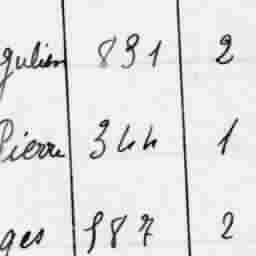 Julien 891 2
Pierre 344 1
ges 987 2